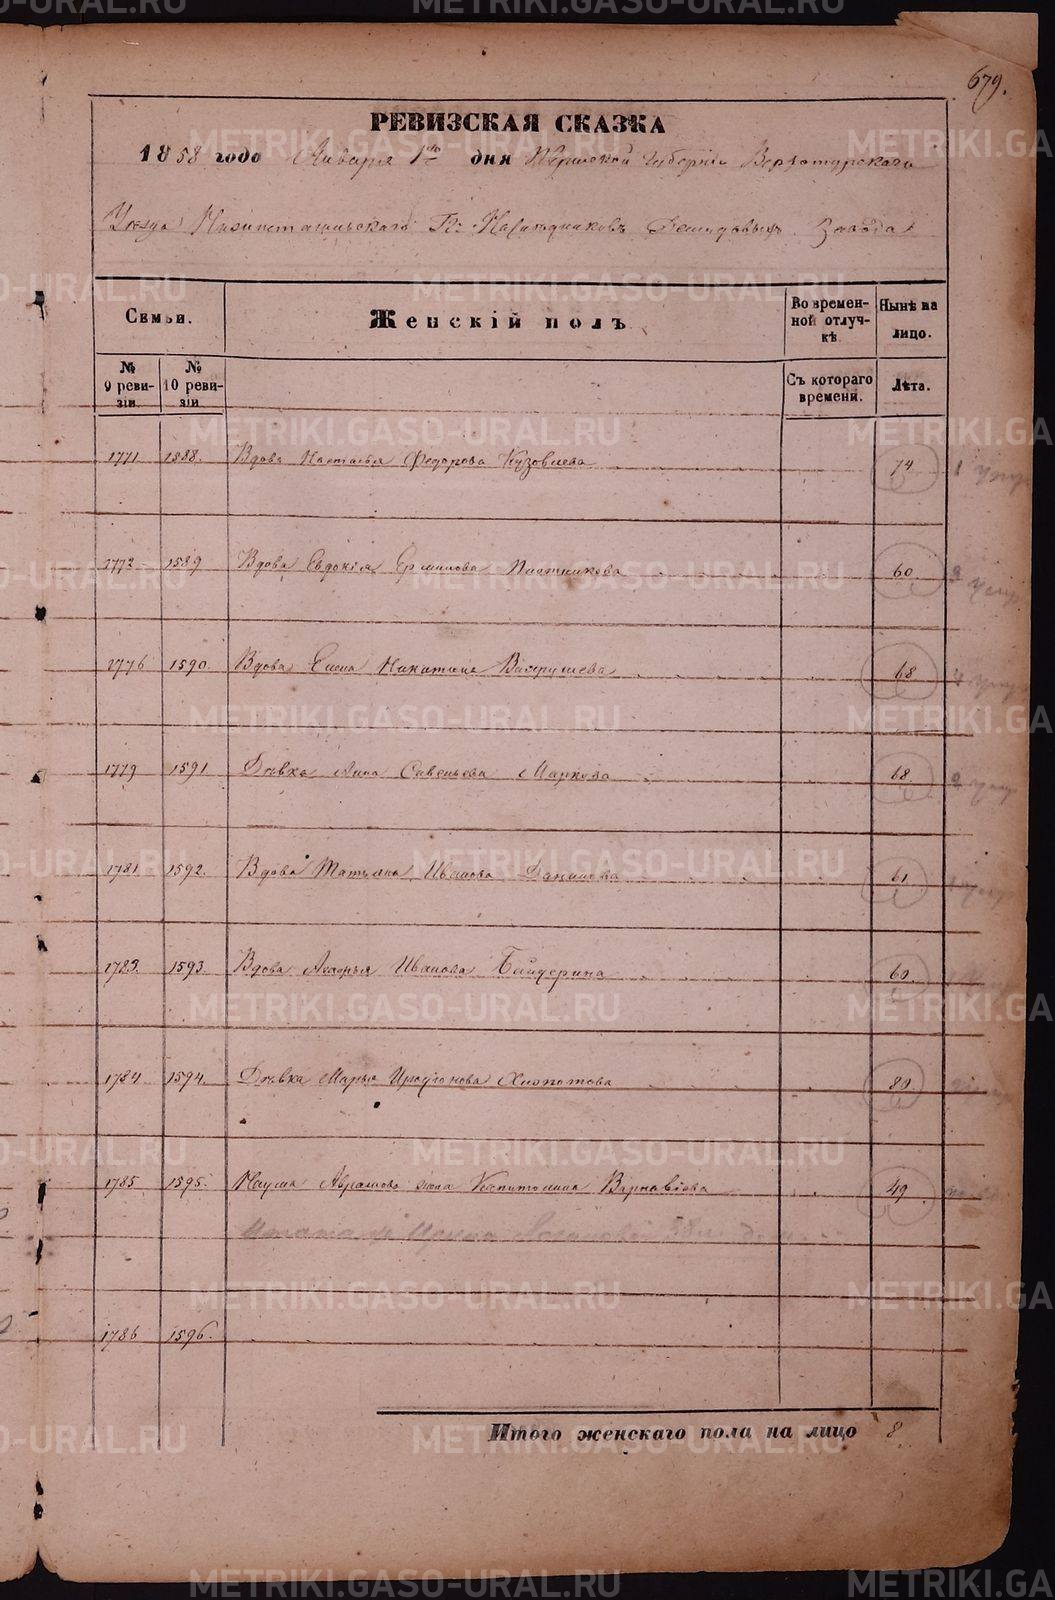 679.
РЕВИЗСКАЯ СКАЗКА
1858 года Января 1го дня Пермской Губерніи Верхотурскаго
Уѣзда Нижнетагильскаго Гг. Наслѣдниковъ Демидовыхъ Завода
Семьи.
Женскій полъ
Во времен-
ной отлуч-
кѣ
Нынѣ на
лицо.
№
9 реви-
зіи
№
10 реви-
зіи
Съ котораго
времени.
Лѣта.
1771 1588. Вдова Настасья Федорова Кузовлева 74
1772 1589 Вдова Евдокія Ермилова Плотникова 60.
1776 1590. Вдова Елена Никитина Вахрушева 68
1779 1591 Дѣвка Анна Савельева Маркова 68.
1781 1592. Вдова Татьяна Иванова Данилова 61
1783. 1593. Вдова Агафья Иванова Байдерина 60.
1784 1594. Дѣвка Марья Иродіонова Хлопотова 80.
1785. 1595. Наума Аврамова жена Капитолина Варнавіева 49
1786 1596.
Итого женскаго пола на лицо 8.
METRIKI.GASO-URAL.RU